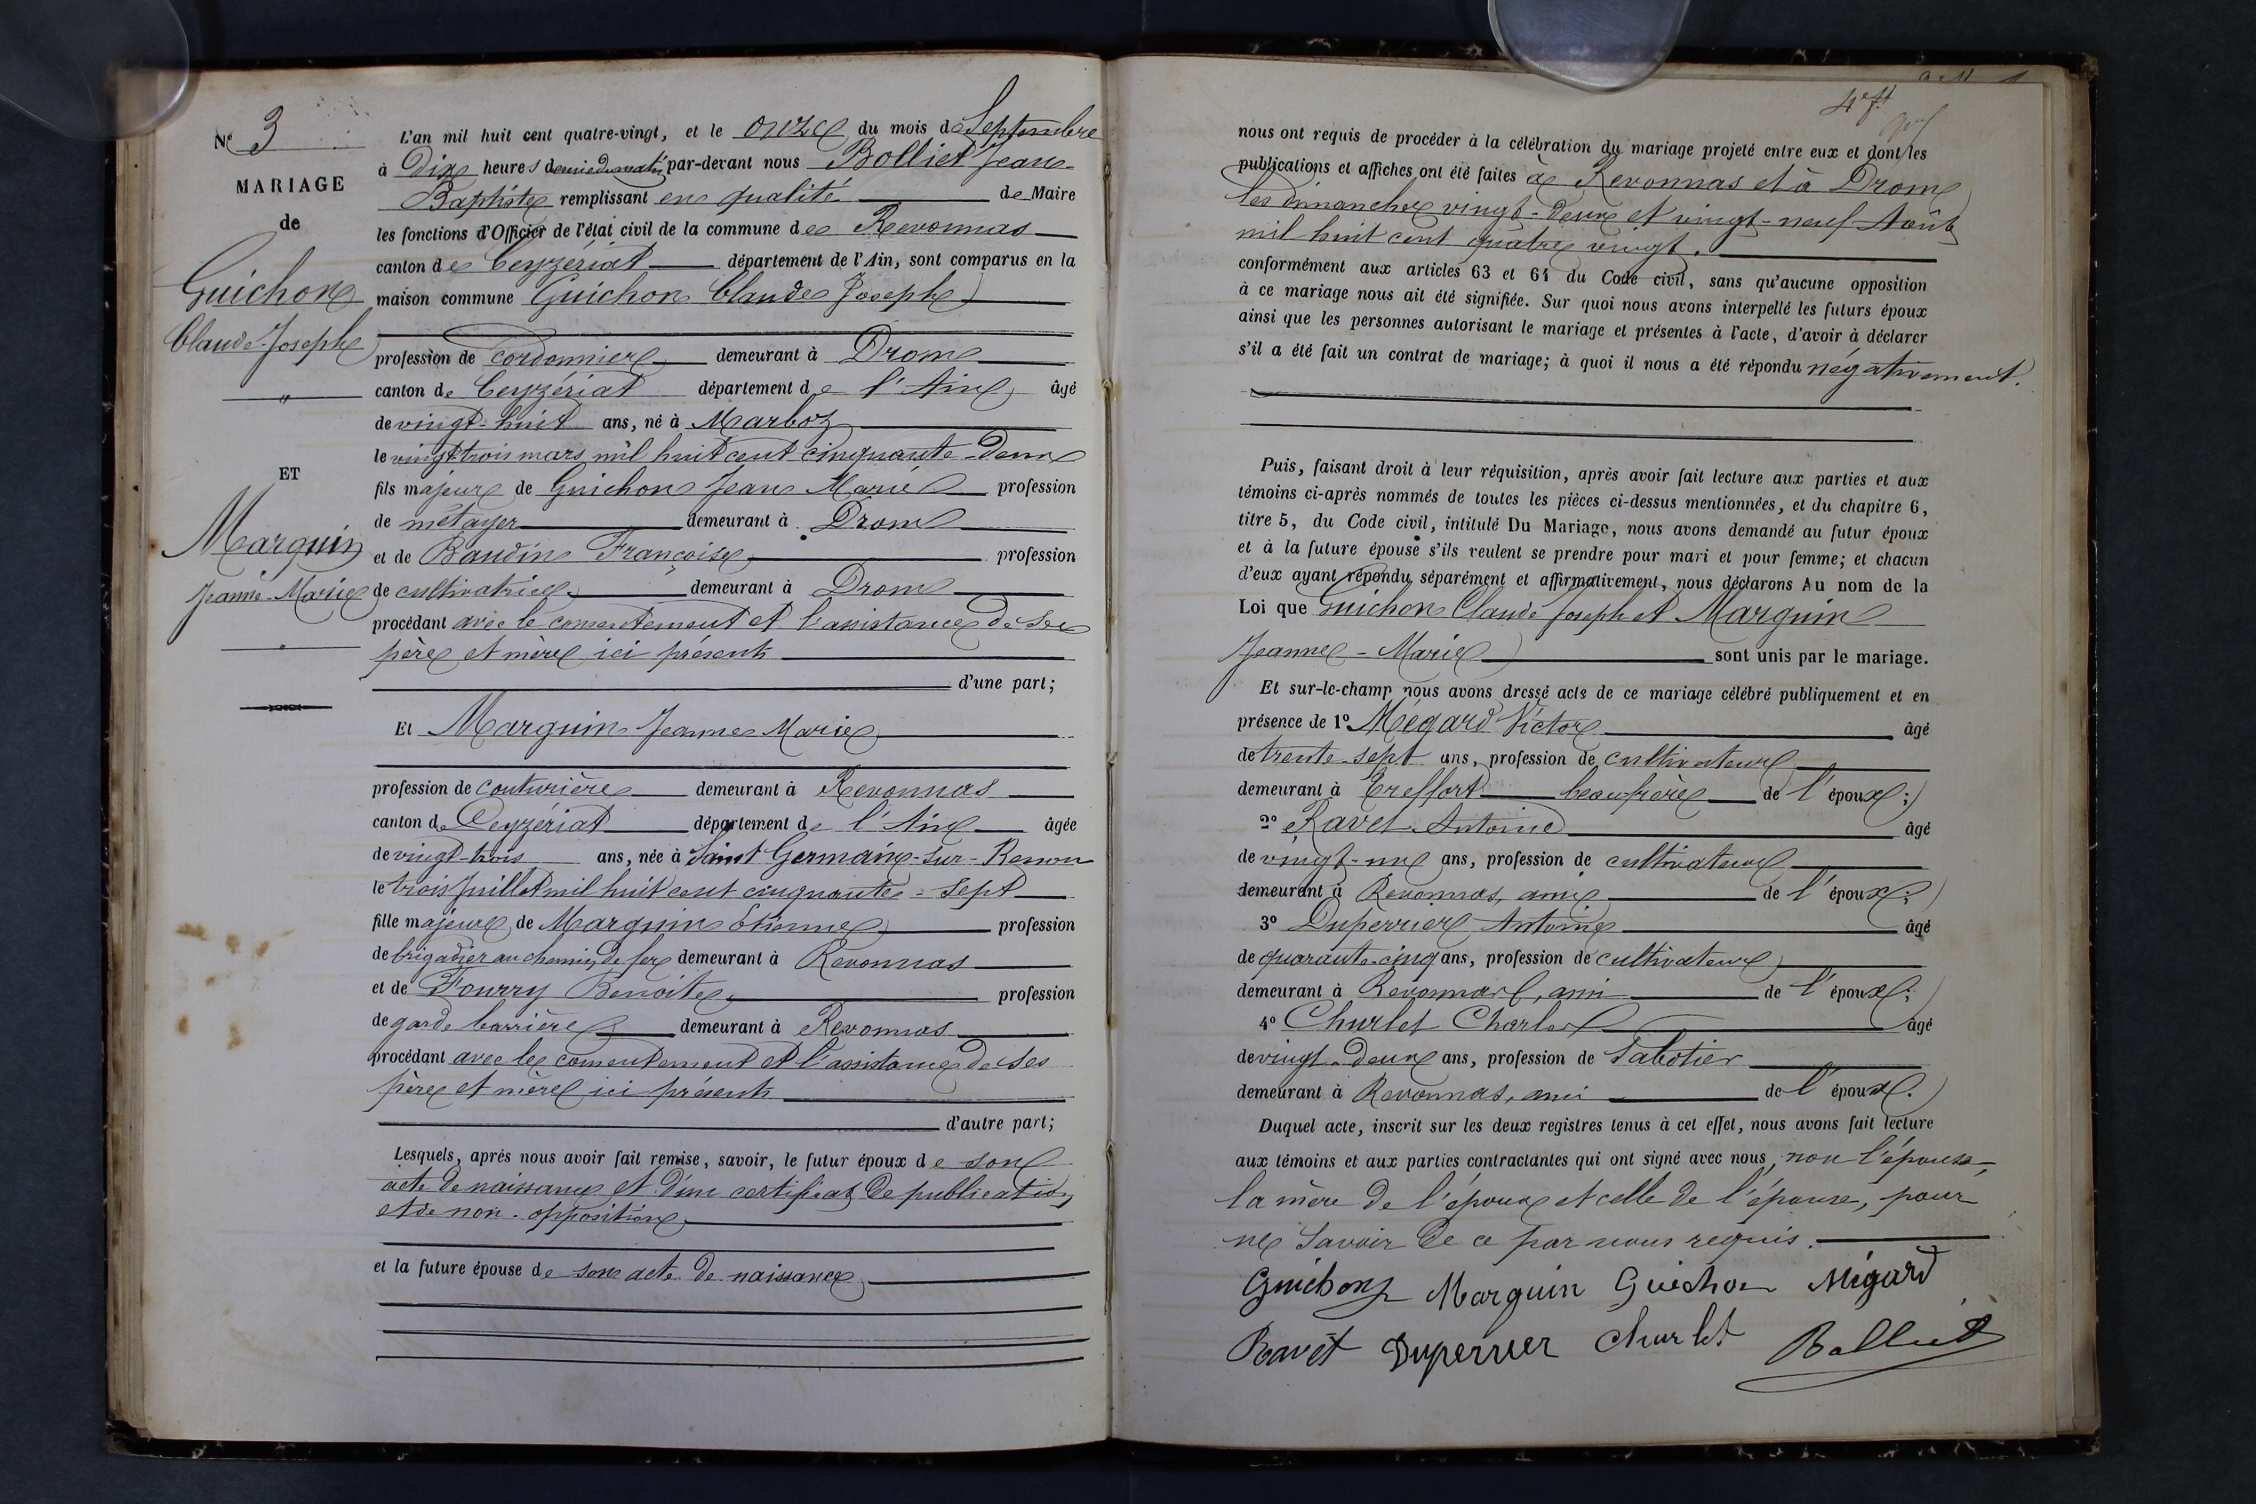 N° 3
MARIAGE
de
Guichon
Claude-Joseph
"
ET
Marguin
Jeanne-Marie
"
L'an mil huit cent quatre-vingt, et le onze du mois de Septembre
à Dix heures demie du matin par-devant nous Bolliet Jean
Baptiste remplissant en qualité de Maire
les fonctions d'Officier de l'état civil de la commune de Revonnas
canton de Ceyzériat département de l'Ain, sont comparus en la
maison commune Guichon Claude Joseph
profession de cordonnier demeurant à Drom
canton de Ceyzériat département de l'Ain âgé
de vingt-huit ans, né à Marboz
le vingt trois mars mil huit cent cinquante-deux
fils majeur de Guichon Jean Marie profession
de métayer demeurant à Drom
et de Baudin Françoise profession
de cultivatrice demeurant à Drom
procédant avec le consentement et l'assistance de ses
père et mère ici présents
d'une part;
Et Marguin Jeanne Marie
profession de couturière demeurant à Revonnas
canton de Ceyzériat département de l'Ain âgée
de vingt-trois ans, née à Saint Germain-sur-Renon
le trois Juillet mil huit cent cinquante-sept
fille majeure de Marguin Etienne profession
de brigadier au chemin de fer demeurant à Revonnas
et de Fourry Benoite profession
de garde barrière demeurant à Revonnas
procédant avec le consentement et l'assistance de ses
père et mère ici présents
d'autre part;
Lesquels, après nous avoir fait remise, savoir, le futur époux de son
acte de naissance et d'un certificat de publication
et de non-opposition
et la future épouse de son acte de naissance
nous ont requis de procéder à la célébration du mariage projeté entre eux et dont les
publications et affiches ont été faites à Revonnas et à Drom
les dimanches vingt-deux et vingt-neuf Août
mil huit cent quatre vingt.
conformément aux articles 63 et 64 du Code civil, sans qu'aucune opposition
à ce mariage nous ait été signifiée. Sur quoi nous avons interpellé les futurs époux
ainsi que les personnes autorisant le mariage et présentes à l'acte, d'avoir à déclarer
s'il a été fait un contrat de mariage; à quoi il nous a été répondu négativement.
Puis, faisant droit à leur réquisition, après avoir fait lecture aux parties et aux
témoins ci-après nommés de toutes les pièces ci-dessus mentionnées, et du chapitre 6,
titre 5, du Code civil, intitulé Du Mariage, nous avons demandé au futur époux
et à la future épouse s'ils veulent se prendre pour mari et pour femme; et chacun
d'eux ayant répondu séparément et affirmativement, nous déclarons Au nom de la
Loi que Guichon Claude Joseph et Marguin
Jeanne-Marie sont unis par le mariage.
Et sur-le-champ nous avons dressé acte de ce mariage célébré publiquement et en
présence de 1° Mégard Victor âgé
de trente-sept ans, profession de cultivateur
demeurant à Treffort beau-frère de l'époux;
2° Ravet Antoine âgé
de vingt-un ans, profession de cultivateur
demeurant à Revonnas, ami de l'époux;
3° Duperrier Antoine âgé
de quarante-cinq ans, profession de cultivateur
demeurant à Revonnas, ami de l'époux;
4° Churlet Charles âgé
de vingt-deux ans, profession de Sabotier
demeurant à Revonnas, ami de l'époux.
Duquel acte, inscrit sur les deux registres tenus à cet effet, nous avons fait lecture
aux témoins et aux parties contractantes qui ont signé avec nous, non l'épouse,
la mère de l'époux et celle de l'épouse, pour
ne savoir de ce par nous requis.
Guichon Marguin Guichon Mégard
Ravet Duperrier Churlet Bolliet